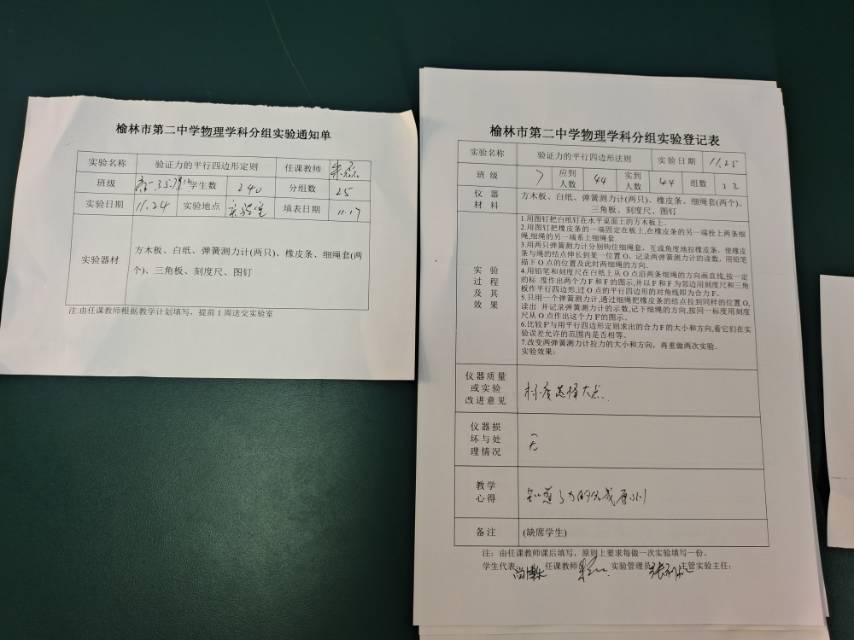 榆林市第二中学物理学科分组实验通知单
实验名称 验证力的平行四边形定则 任课教师
班级 学生数 240 分组数 25
实验日期 11.24 实验地点 实验室 填表日期 11.17
实验器材 方木板、白纸、弹簧测力计(两只)、橡皮条、细绳套(两
个)、三角板、刻度尺、图钉
注:由任课教师根据教学计划填写，提前1周送交实验室
榆林市第二中学物理学科分组实验登记表
实验名称 验证力的平行四边形法则 实验日期 11.25
班级 7 应到人数 44 实到人数 44 组数 12
仪器材料 方木板、白纸、弹簧测力计(两只)、橡皮条、细绳套(两个)、
三角板、刻度尺、图钉
实验过程及其效果
1.用图钉把白纸钉在水平桌面上的方木板上.
2.用图钉把橡皮条的一端固定在板上,在橡皮条的另一端拴上两条细
绳,细绳的另一端系上细绳套.
3.用两只弹簧测力计分别钩住细绳套，互成角度地拉橡皮条，使橡皮
条与绳的结点伸长到某一位置O，记录两弹簧测力计的读数，用铅笔
描下O点的位置及此时两细绳的方向.
4.用铅笔和刻度尺在白纸上从O点沿两条细绳的方向画直线,按一定
的标 度作出两个力F和F的图示,并以F和F为邻边用刻度尺和三角
板作平行四边形,过O点的平行四边形的对角线即为合力F.
5.只用一个弹簧测力计,通过细绳把橡皮条的结点拉到同样的位置O,
读出 并记录弹簧测力计的示数,记下细绳的方向,按同一标度用刻度
尺从O点作出这个力F'的图示.
6.比较F'与用平行四边形定则求出的合力F的大小和方向,看它们在实
验误差允许的范围内是否相等.
7.改变两弹簧测力计拉力的大小和方向，再重做两次实验.
实验效果:
仪器质量或实验改进意见
仪器损坏与处理情况 无
教学心得 知道了力的合成
备注 (缺席学生)
注：由任课教师课后填写，原则上要求每做一次实验填写一份。
学生代表 任课教师 实验管理员 主管实验主任: